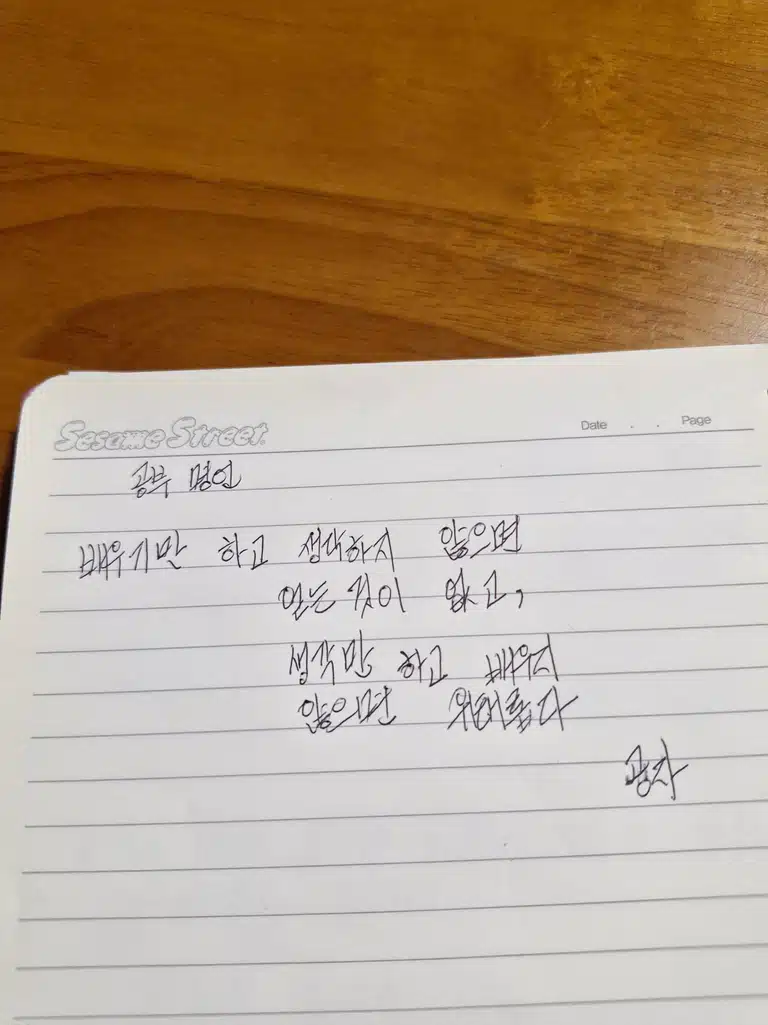 Sesame Street
Date . . Page
공부 명언
배우기만 하고 생각하지 않으면
얻는 것이 없고,
생각만 하고 배우지
않으면 위태롭다
공자